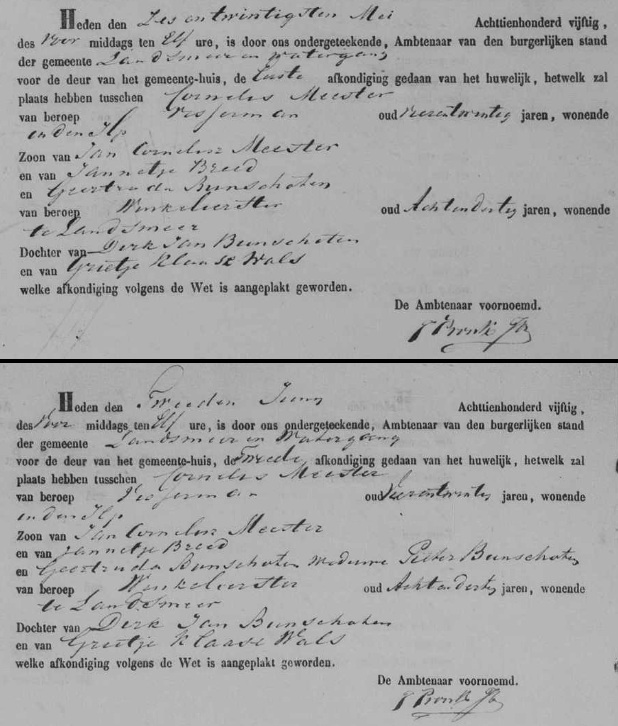 Heden den Zes en twintigsten Mei Achttienhonderd vijftig,
des Voor middags ten Elf ure, is door ons ondergeteekende, Ambtenaar van den burgerlijken stand
der gemeente Landsmeer en Watergang
voor de deur van het gemeente-huis, de Eerste afkondiging gedaan van het huwelijk, hetwelk zal
plaats hebben tusschen Cornelis Meester
van beroep Visserman oud Vierentwintig jaren, wonende
in den Ilp
Zoon van Jan Cornelisz Meester
en van Jannetje Breed
en Geertruda Bunschoten
van beroep Winkelierster oud Achtendertig jaren, wonende
te Landsmeer
Dochter van Dirk Jan Bunschoten
en van Grietje Klaasse Wals
welke afkondiging volgens de Wet is aangeplakt geworden.
De Ambtenaar voornoemd.
Pronk
Heden den Tweeden Junij Achttienhonderd vijftig,
des Voor middags ten Elf ure, is door ons ondergeteekende, Ambtenaar van den burgerlijken stand
der gemeente Landsmeer en Watergang
voor de deur van het gemeente-huis, de Tweede afkondiging gedaan van het huwelijk, hetwelk zal
plaats hebben tusschen Cornelis Meester
van beroep Visserman oud Vierentwintig jaren, wonende
in den Ilp
Zoon van Jan Cornelisz Meester
en van Jannetje Breed
en Geertruda Bunschoten Weduwe Pieter Bunschoten
van beroep Winkelierster oud Achtendertig jaren, wonende
te Landsmeer
Dochter van Dirk Jan Bunschoten
en van Grietje Klaasse Wals
welke afkondiging volgens de Wet is aangeplakt geworden.
De Ambtenaar voornoemd.
Pronk